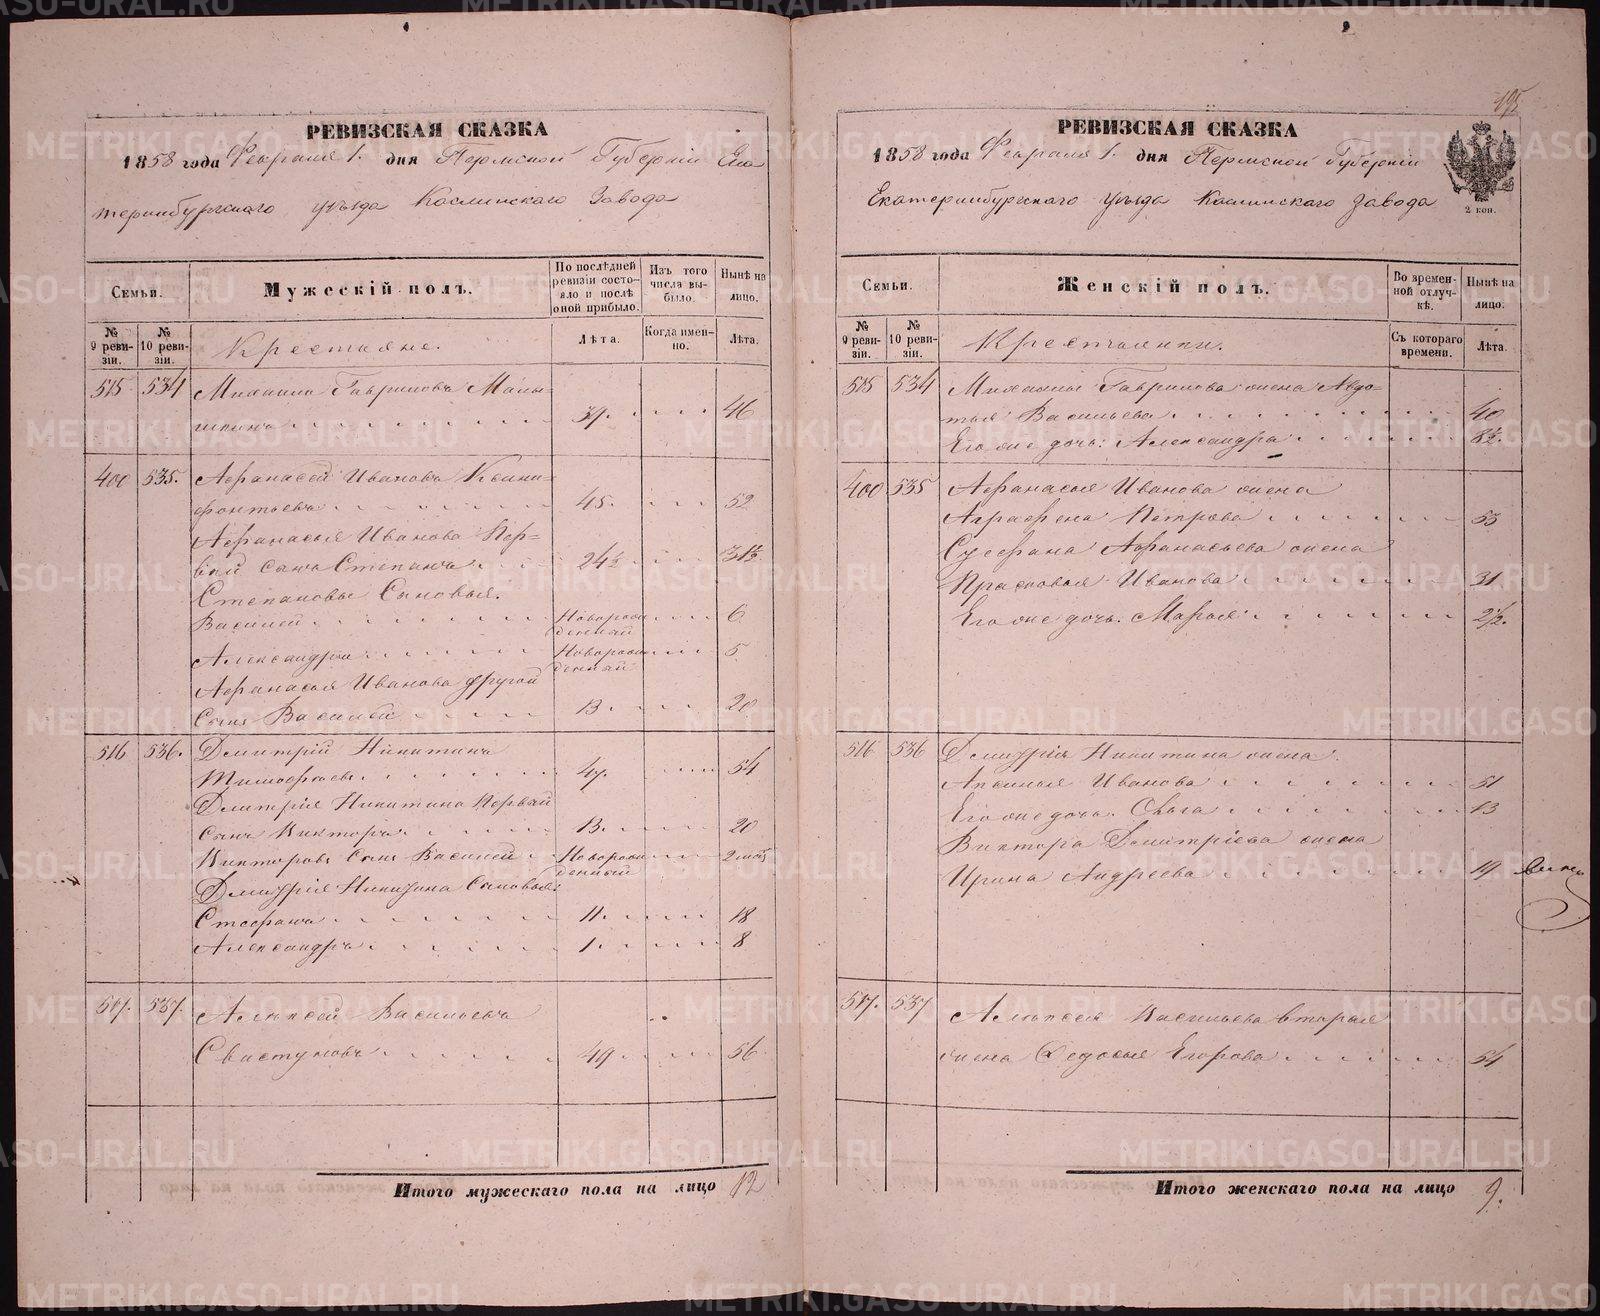 РЕВИЗСКАЯ СКАЗКА
1858 года Февраля 1. дня Пермской Губерніи Ека
теринбургскаго уѣзда Каслинскаго Завода
Семьи.
Мужескій полъ.
По послѣдней ревизіи состояло и послѣ оной прибыло.
Изъ того числа выбыло.
Нынѣ на лицо.
№ 9 ревизіи.
№ 10 ревизіи.
Крестьяне.
Лѣта.
Когда именно.
Лѣта.
515 534 Михаилъ Гавриловъ Малы-
шкинъ 39. 46
400 535. Афанасей Ивановъ Ксени-
фонтьевъ 45. 52
Афанасья Иванова Пер-
вый сынъ Степанъ 24½ 31½
Степановы Сыновья.
Василей Новорожденный 6
Александръ Новорожденный 5
Афанасья Иванова другой
Сынъ Василій 13. 20
516 536. Дмитрій Никитинъ
Тимофѣевъ 47. 54
Дмитрія Никитина Первый
сынъ Викторъ 13. 20
Викторовъ Сынъ Василей Новорожденный
Дмитрія Никитина Сыновья:
Стефанъ 11. 18
Александръ 1. 8
517. 537. Алексей Васильевъ
Свистуновъ 49 56
Итого мужескаго пола на лицо 12
195
РЕВИЗСКАЯ СКАЗКА
1858 года Февраля 1. дня Пермской Губерніи
Екатеринбургскаго уѣзда Каслинскаго Завода
2 коп.
Семьи.
Женскій полъ.
Во временной отлучкѣ.
Нынѣ на лицо.
№ 9 ревизіи.
№ 10 ревизіи.
Крестьянки.
Съ котораго времени.
Лѣта.
515 534 Михаилы Гаврилова жена Авдо-
тья Васильева 40
Его же дочь: Александра 8½.
400 535 Афанасья Иванова жена
Аграфена Петрова 53
Стефана Афанасьева жена
Прасковья Иванова 31
Его же дочь. Марья 2½.
516 536 Дмитрія Никитина жена
Аксинья Иванова 51
Его же дочь. Ольга 13
Виктора Дмитріева жена
Ирина Андреева 19
517. 537 Алексея Васильева вторая
жена Федосья Егорова 54
Итого женскаго пола на лицо 9.
METRIKI.GASO-URAL.RU